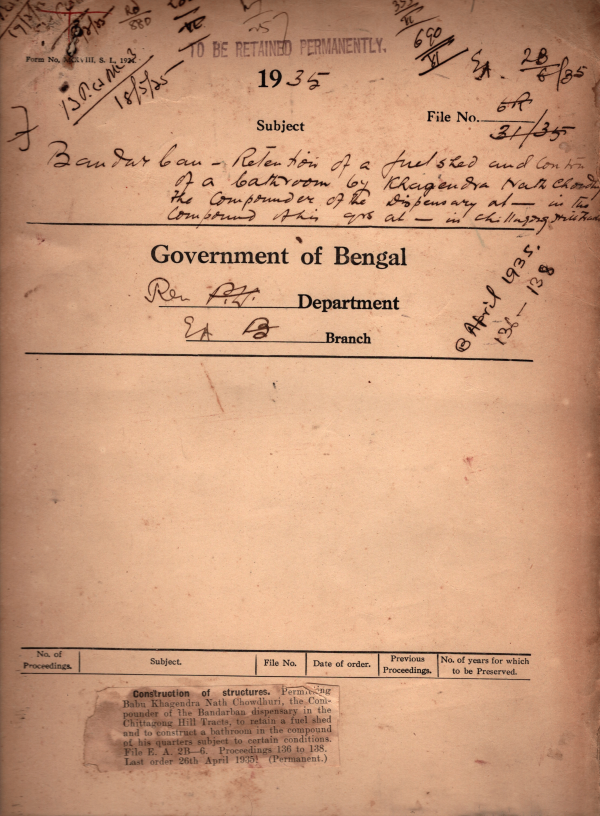 TO BE RETAINED PERMANENTLY.
690
VI
EA. 2B
6/35
Form No.
18/5/35
1935
File No. 31/35
Subject
Bandarban – Retention of a fuel shed and
of a bathroom by Khagendra Nath Chowdhury
the Compounder of the Dispensary at — in the
Compound of his qrs at — in Chittagong Hill Tracts
Government of Bengal
B April 1935.
136 – 138
Rev Department
EA B Branch
No. of Proceedings.
Subject.
File No.
Date of order.
Previous Proceedings.
No. of years for which to be Preserved.
Construction of structures. Permitting
Babu Khagendra Nath Chowdhuri, the Com-
pounder of the Bandarban dispensary in the
Chittagong Hill Tracts, to retain a fuel shed
and to construct a bathroom in the compound
of his quarters subject to certain conditions.
File E. A. 2B—6. Proceedings 136 to 138.
Last order 26th April 1935. (Permanent.)